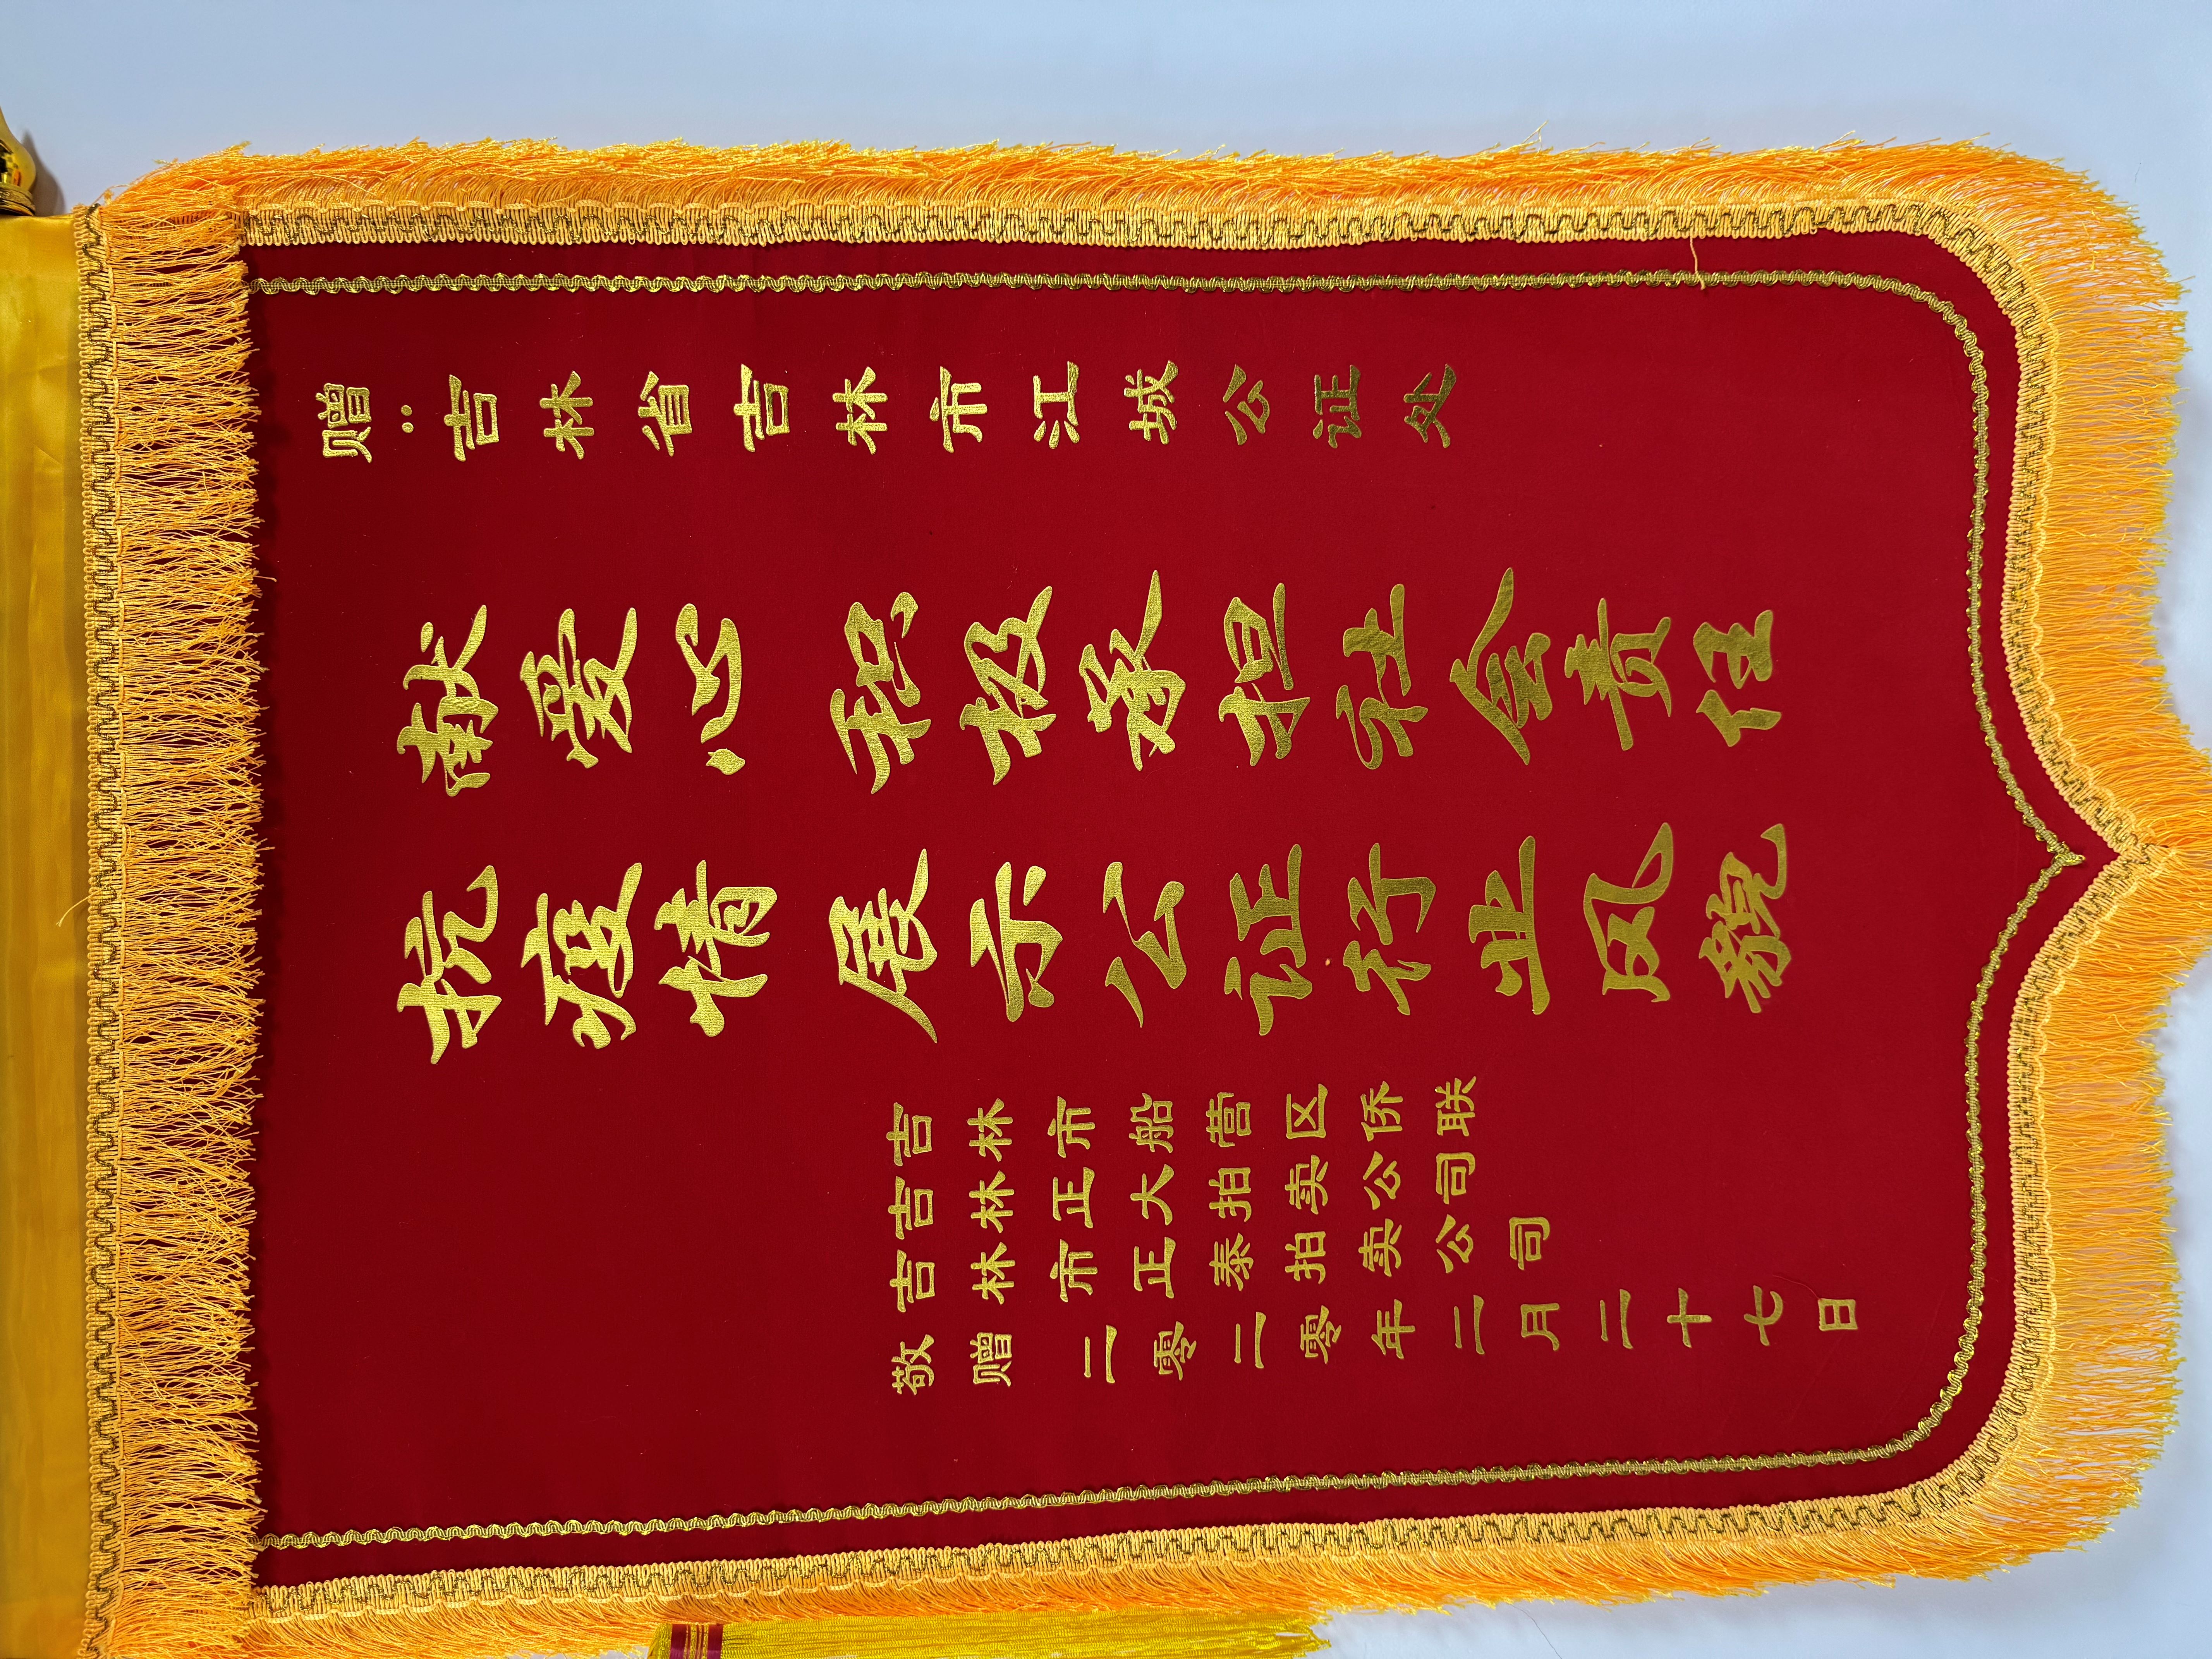 赠:吉林省吉林市江城公证处
献爱心 积极承担社会责任
抗疫情 展示公证行业风貌
吉林市船营区侨联
吉林正大拍卖公司
吉林市正泰拍卖公司
敬赠 二零二零年二月二十七日